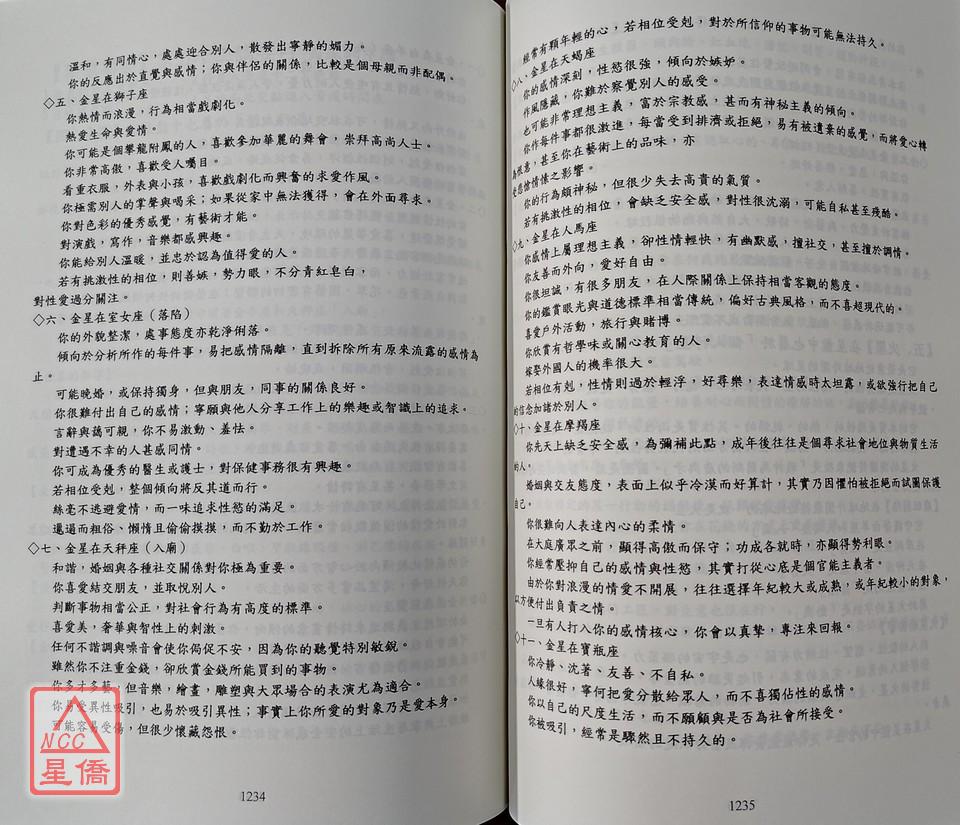 溫和，有同情心，處處迎合別人，散發出寧靜的媚力。
你的反應出於直覺與感情；你與伴侶的關係，比較是個母親而非配偶。
◇五、金星在獅子座
你熱情而浪漫，行為相當戲劇化。
熱愛生命與愛情。
你可能是個攀龍附鳳的人，喜歡參加華麗的舞會，崇拜高尚人士。
你非常高傲，喜歡受人囑目。
看重衣服，外表與小孩，喜歡戲劇化而興奮的求愛作風。
你極需別人的掌聲與喝采；如果從家中無法獲得，會在外面尋求。
你對色彩的優秀感覺，有藝術才能。
對演戲，寫作，音樂都感興趣。
你能給別人溫暖，並忠於認為值得愛的人。
若有挑激性的相位，則善嫉，勢力眼，不分青紅皂白，
對性愛過分關注。
◇六、金星在室女座（落陷）
你的外貌整潔，處事態度亦乾淨俐落。
傾向於分析所作的每件事，易把感情隔離，直到拆除所有原來流露的感情為
止。
可能晚婚，或保持獨身，但與朋友，同事的關係良好。
你很難付出自己的感情；寧願與他人分享工作上的樂趣或智識上的追求。
言辭與藹可親，你不易激動、羞怯。
對遭遇不幸的人甚感同情。
你可成為優秀的醫生或護士，對保健事務很有興趣。
若相位受剋，整個傾向將反其道而行。
絲毫不逃避愛情，而一味追求性慾的滿足。
邋遢而粗俗、懶惰且偷偷摸摸，而不勤於工作。
◇七、金星在天秤座（入廟）
和諧，婚姻與各種社交關係對你極為重要。
你喜愛結交朋友，並取悅別人。
判斷事物相當公正，對社會行為有高度的標準。
喜愛美，奢華與智性上的刺激。
任何不諧調與噪音會使你侷促不安，因為你的聽覺特別敏銳。
雖然你不注重金錢，卻欣賞金錢所能買到的事物。
你多才多藝，但音樂，繪畫，雕塑與大眾場合的表演尤為適合。
你易受異性吸引，也易於吸引異性；事實上你所愛的對象乃是愛本身。
可能容易受傷，但很少懷藏怨恨。
NCC
星僑
1234
經常有顆年輕的心，若相位受剋，對於所信仰的事物可能無法持久。
◇八、金星在天蝎座
你的感情深刻，性慾很強，傾向於嫉妒。
作風隱藏，你難於察覺別人的感受。
也可能非常理想主義，富於宗教感，甚而有神秘主義的傾向。
你作每件事都很激進，每當受到排濟或拒絕，易有被遺棄的感覺，而將愛心轉
為恨意，甚至你在藝術上的品味，亦
受悲愴情愫之影響。
你的行為頗神秘，但很少失去高貴的氣質。
若有挑激性的相位，會缺乏安全感，對性很沈溺，可能自私甚至殘酷。
◇九、金星在人馬座
你感情上屬理想主義，卻性情輕快，有幽默感，擅社交，甚至擅於調情。
你友善而外向，愛好自由。
你很坦誠，有很多朋友，在人際關係上保持相當客觀的態度。
你的鑑賞眼光與道德標準相當傳統，偏好古典風格，而不喜超現代的。
喜愛戶外活動，旅行與賭博。
你欣賞有哲學味或關心教育的人。
嫁娶外國人的機率很大。
若相位有剋，性情則過於輕浮，好尋樂，表達情感時太坦露，或欲強行把自己
的信念加諸於別人。
◇十、金星在摩羯座
你先天上缺乏安全感，為彌補此點，成年後往往是個尋求社會地位與物質生活
的人。
婚姻與交友態度，表面上似乎冷漠而好算計，其實乃因懼怕被拒絕而試圖保護
自己。
你很難向人表達內心的柔情。
在大庭廣眾之前，顯得高傲而保守；功成名就時，亦顯得勢利眼。
你經常壓抑自己的感情與性慾，其實打從心底是個官能主義者。
由於你對浪漫的情愛不開展，往往選擇年紀較大或成熟，或年紀較小的對象，
以方便付出負責之情。
一旦有人打入你的感情核心，你會以真摯，專注來回報。
◇十一、金星在寶瓶座
你冷靜、沈著、友善、不自私。
人緣很好，寧何把愛分散給眾人，而不喜獨佔性的感情。
你以自己的尺度生活，而不願顧與是否為社會所接受。
你被吸引，經常是驟然且不持久的。
1235